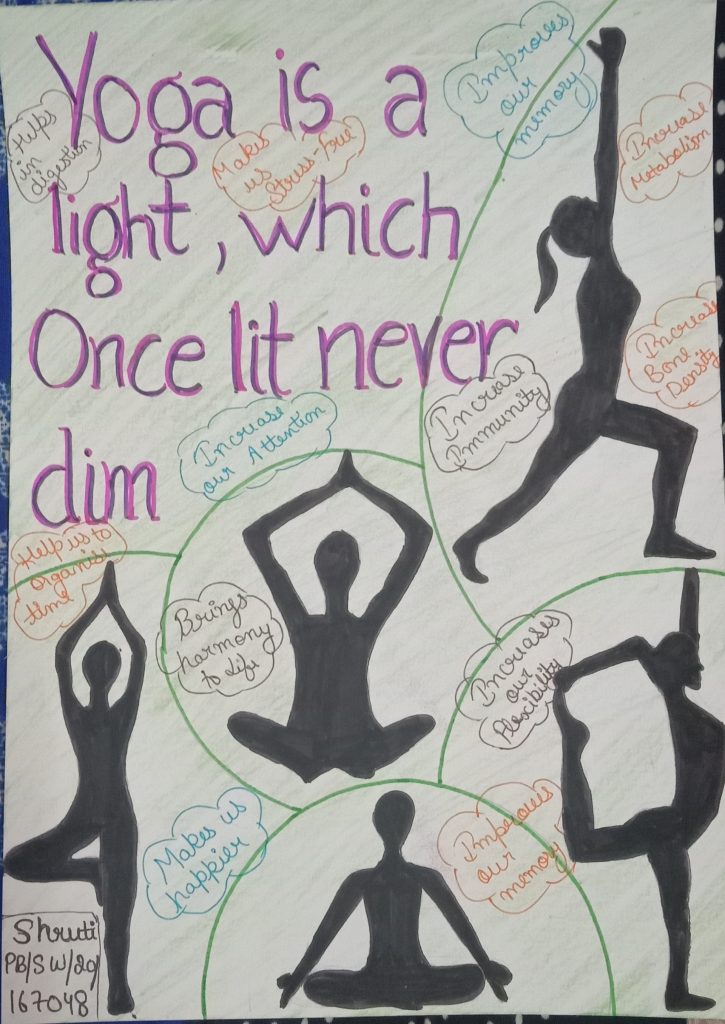 Yoga is a
light, which
Once lit never
dim
Helps
in
digestion
Makes
us
Stress-Free
Improves
our
memory
Increase
Metabolism
Increase
Bone
Density
Increase
Immunity
Increase
our Attention
Help us to
organise
time
Brings
harmony
to life
Increases
our
flexibility
Makes us
happier
Improves
our
memory
Shruti
PB/SW/20/
167048